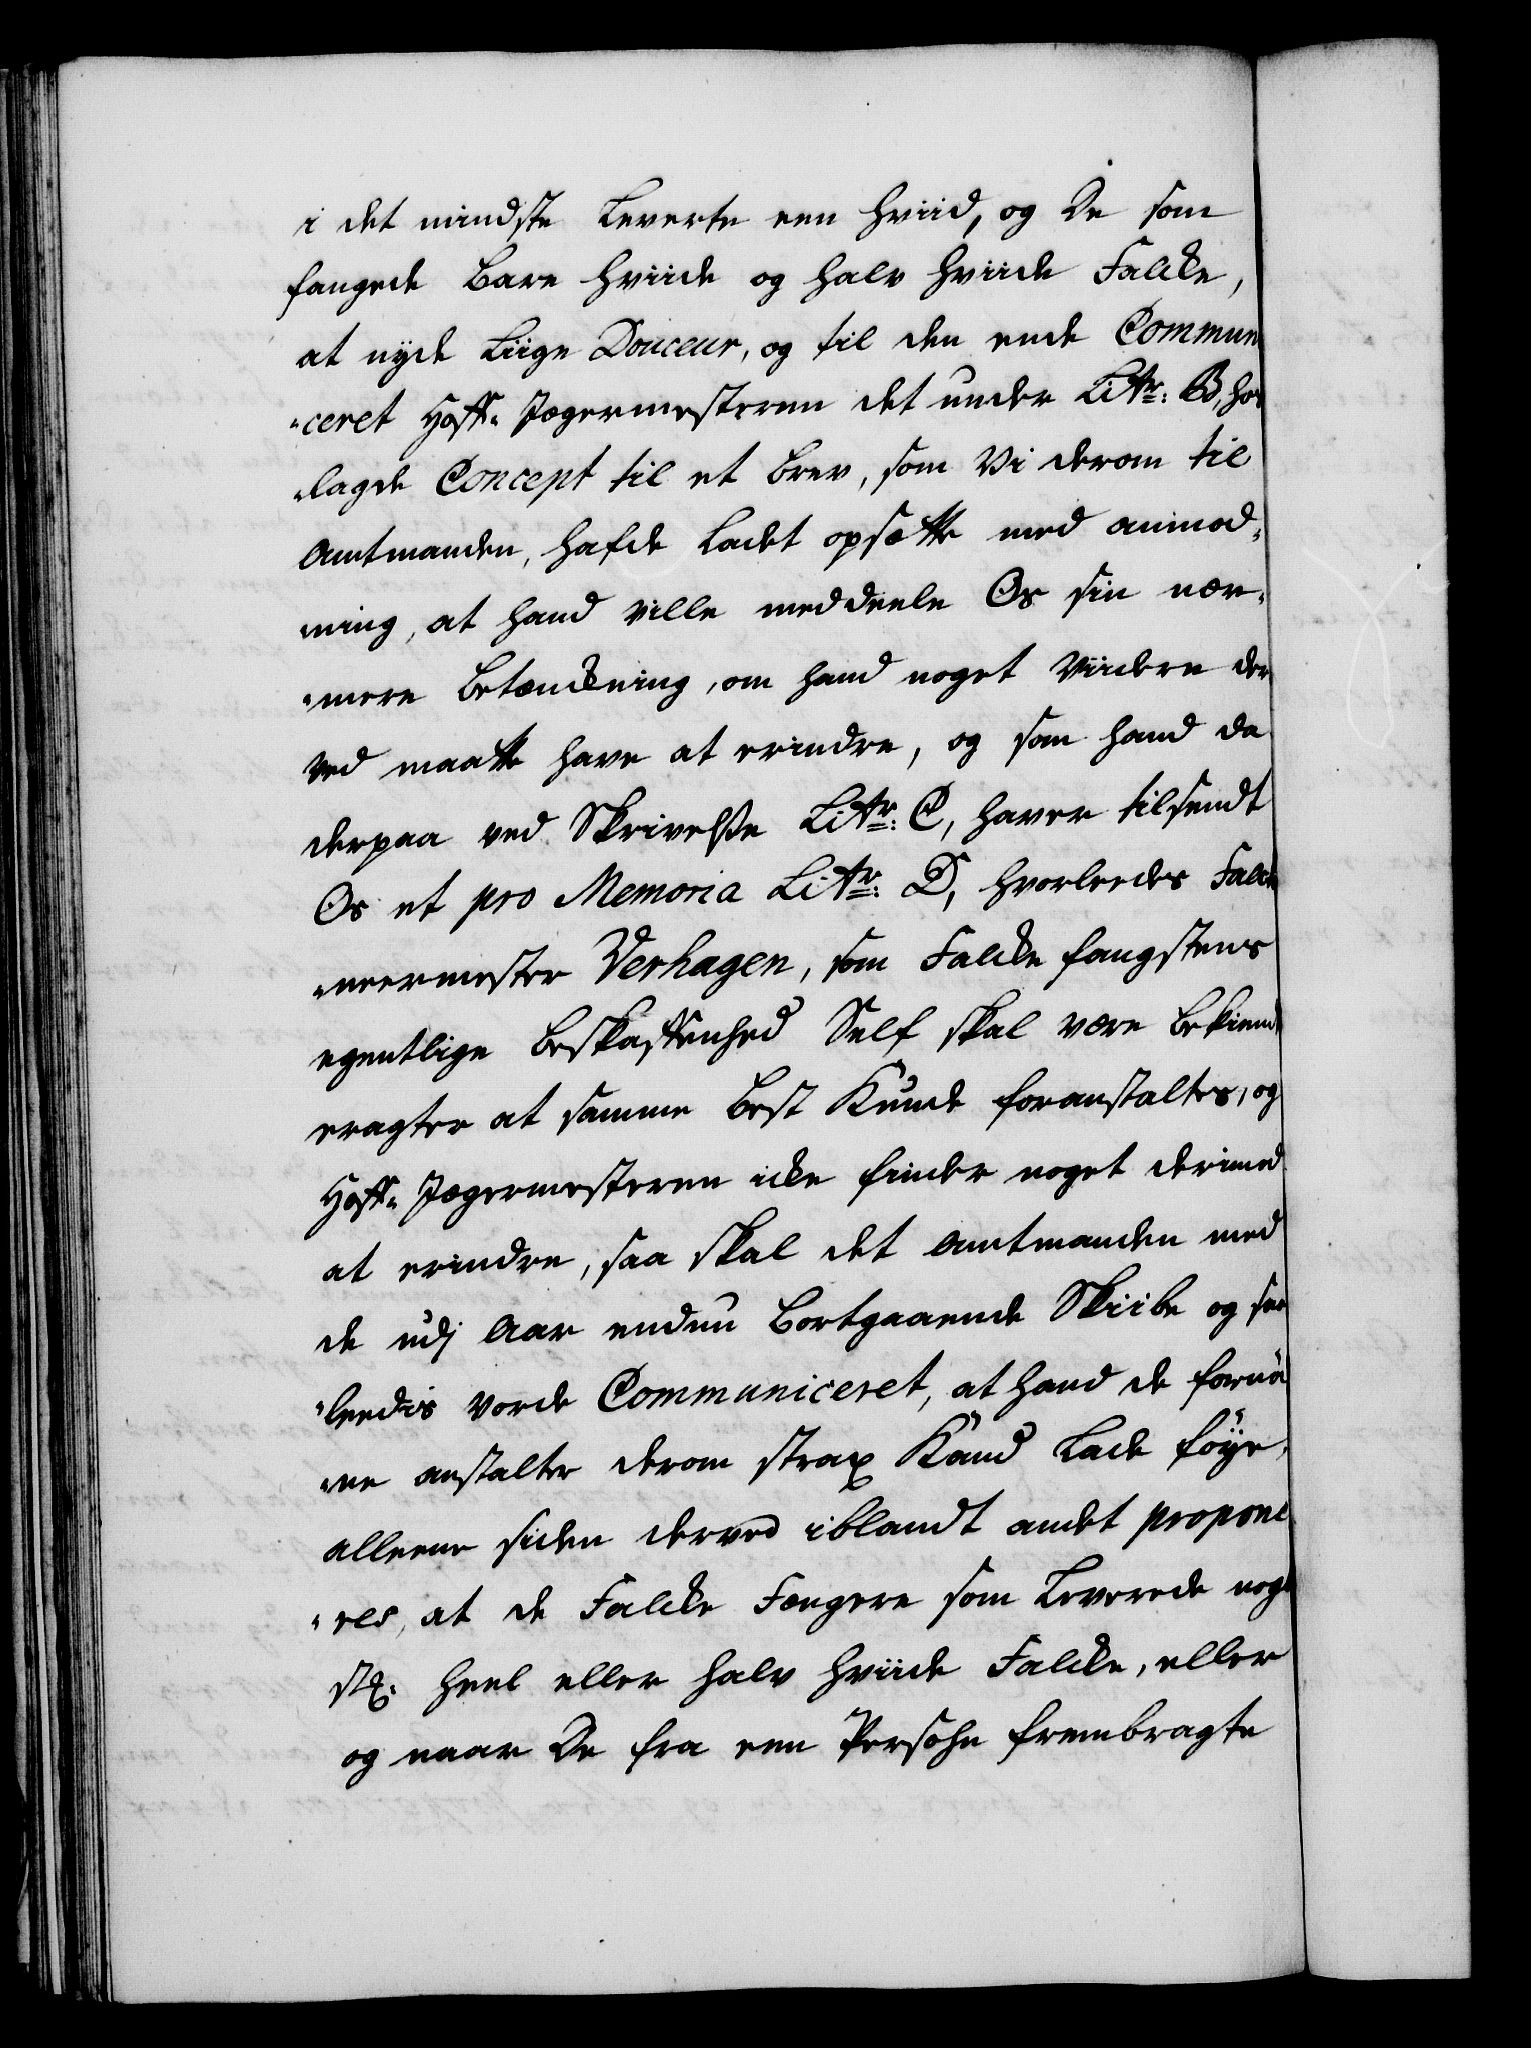 i det mindste Leverte een hviid, og De som
fangede Bare hviide og halv hviide Falcke,
at nyde Liige Douceur, og til den ende Commun
"ceret Hoff- Jægermesteren det under Litr: B, hos
"lagde Concept til et Brev, som Vi derom til
Amtmanden, hafde Ladet opsætte med anmod-
"ning, at hand ville meddeele Os sin nær-
"mere Betænckning, om hand noget Viidere der
ved maatte have at erindre, og som hand da
derpaa ved Skrivelße Litr: C, haver tilsendt
Os et pro Memoria Litr: D, hvorleedes Falck
"neermester Verhagen, som Falcke fangstens
egentlige Beskaffenhed Self skal være bekiend
eragter at samme Best Kunde foranstaltes, og
Hoff- Jægermesteren icke finder noget derimod
at erindre, saa skal det Amtmanden med
de udj Aar endnu Bortgaaende Skiibe og saa
"leedis vorde Communiceret, at hand de fornö
"ne anstalter derom strax Kand Lade föye,
alleene siden derved iblandt andet propone
"res, at de Falcke Fængere som Leverede nog
st. heel eller halv hviide Falcke, eller
og naar De fra een Persohn frembragte